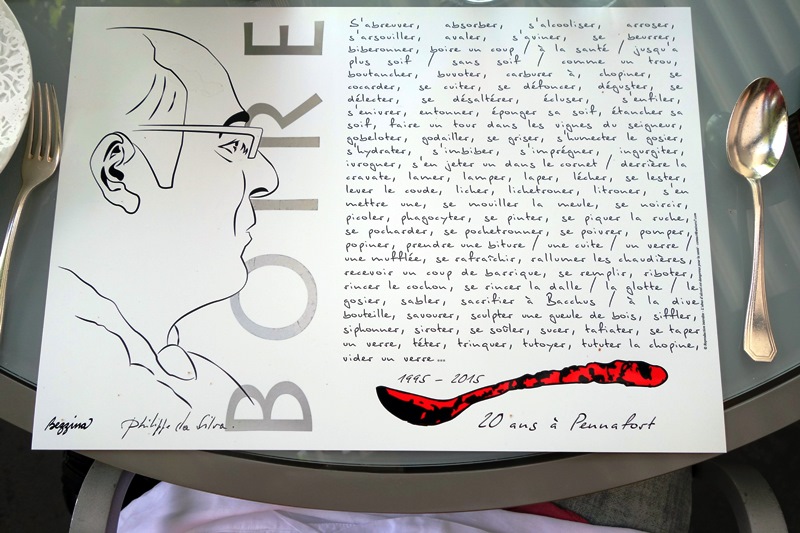 BOIRE
S'abreuver, absorber, s'alcooliser, arroser,
s'arsouiller, avaler, s'aviner, se beurrer,
biberonner, boire un coup / à la santé / jusqu'à
plus soif / sans soif / comme un trou,
boutancher, buvoter, carburer à, chopiner, se
cocarder, se cuiter, se défoncer, déguster, se
délecter, se désaltérer, écluser, s'enfiler,
s'enivrer, entonner, éponger sa soif, étancher sa
soif, faire un tour dans les vignes du seigneur,
gobeloter, godailler, se griser, s'humecter le gosier,
s'hydrater, s'imbiber, s'imprégner, ingurgiter,
ivrogner, s'en jeter un dans le cornet / derrière la
cravate, lamer, lamper, laper, lécher, se lester,
lever le coude, licher, lichetroner, litroner, s'en
mettre une, se mouiller la meule, se noircir,
picoler, phagocyter, se pinter, se piquer la ruche,
se pocharder, se pochetronner, se poivrer, pomper,
popiner, prendre une biture / une cuite / un verre /
une mufflée, se rafraîchir, rallumer les chaudières,
recevoir un coup de barrique, se remplir, riboter,
rincer le cochon, se rincer la dalle / la glotte / le
gosier, sabler, sacrifier à Bacchus / à la dive
bouteille, savourer, sculpter une gueule de bois, siffler,
siphonner, siroter, se soûler, sucer, tafiater, se taper
un verre, téter, trinquer, tutoyer, tututer la chopine,
vider un verre ...
1995 - 2015
20 ans à Pennafort
Bezzina
Philippe da Silva